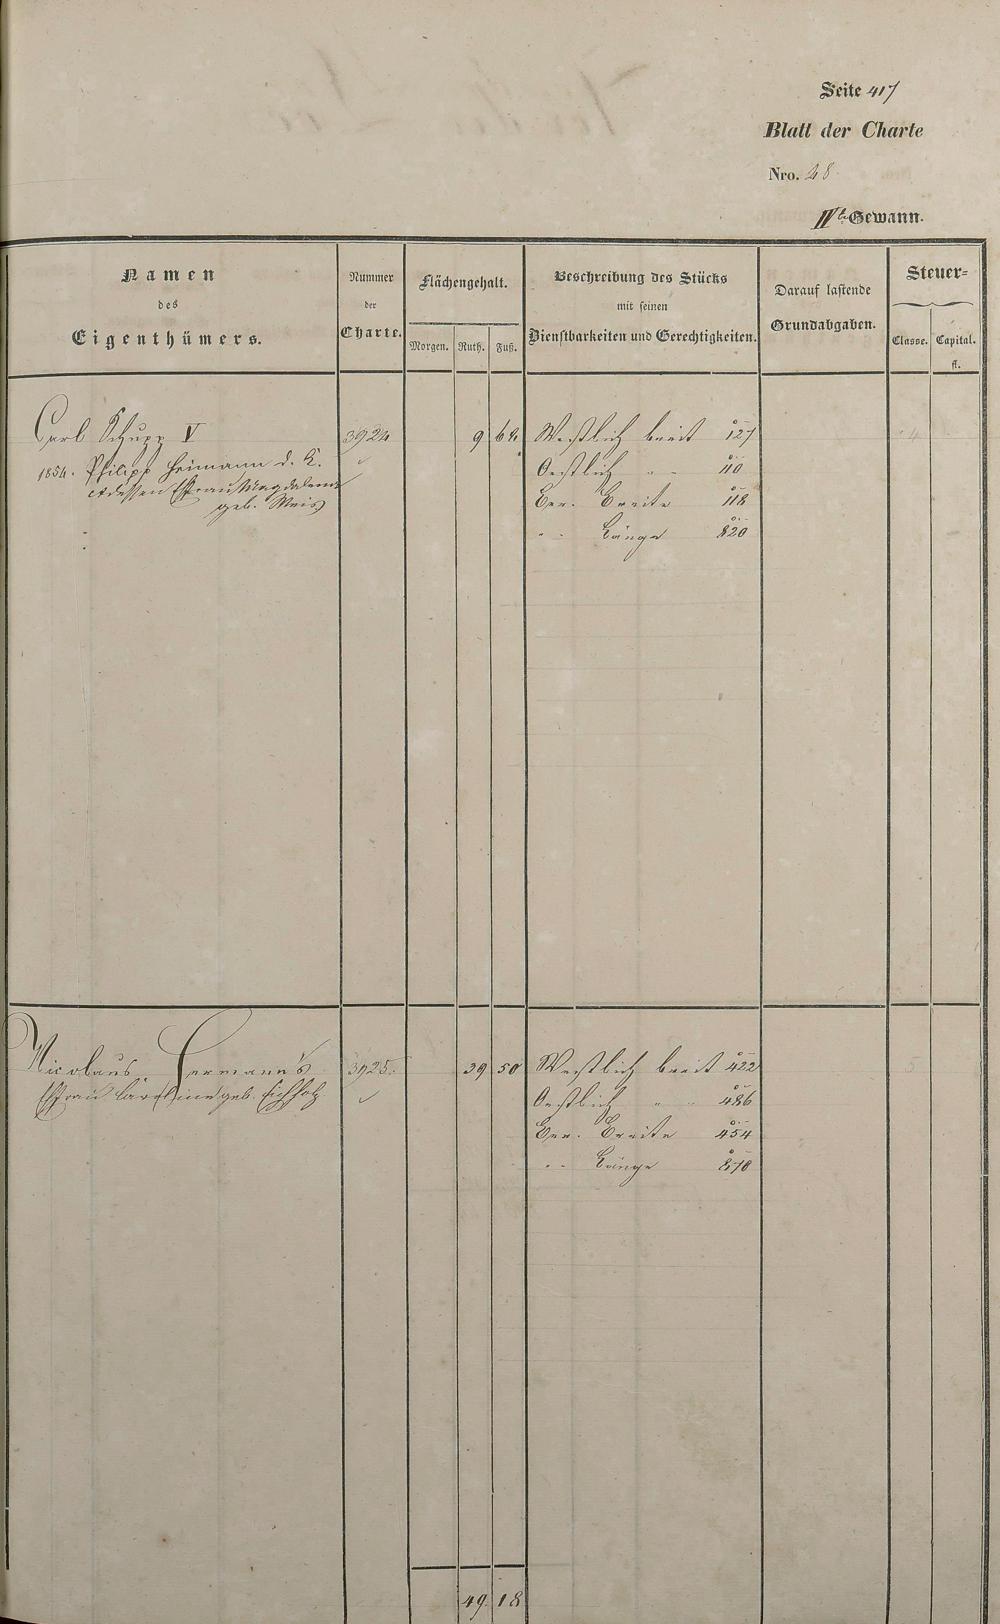 Seite 417
Blatt der Charte
Nro. 48
IVte Gewann.
Namen
des
Eigenthümers.
Nummer
der
Charte.
Flächengehalt.
Morgen. Ruth. Fuß.
Beschreibung des Stücks
mit seinen
Dienstbarkeiten und Gerechtigkeiten.
Darauf lastende
Grundabgaben.
Steuer-
Classe. Capital.
fl.
Carl Schupp V 3924 9 68 Westlich breit 127 4
1854. Philipp Heimann d. K. Oestlich " " 110
& dessen Ehefrau Magdalena Ver. Breite 118
geb. Weis
" " Länge 820
Nicolaus Hermann's 3925. 39 50 Westlich breit 422 5
Ehefrau Caroline geb. Eichholz Oestlich " " 486
Ver. Breite 454
" " Länge 870
49 18